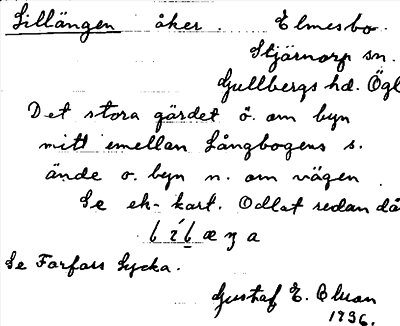 Lillängen åker. Elmesbo.
Stjärnorp sn.
Gullbergs hd. Ögl
Det stora gärdet ö. om byn
mitt emellan Långbogens s.
ände o. byn n. om vägen
Se ek-kart. Odlat redan då
Se Farfars Lycka.
Gustaf E.
1936.